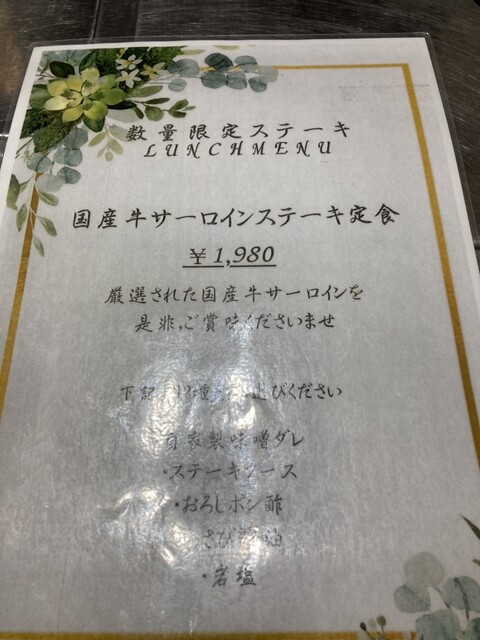 数量限定ステーキ
LUNCHMENU
国産牛サーロインステーキ定食
￥1,980
厳選された国産牛サーロインを
是非,ご賞味くださいませ
下記 種 びください
自家製味噌ダレ
・ステーキソース
・おろしポン酢
さび
・岩塩